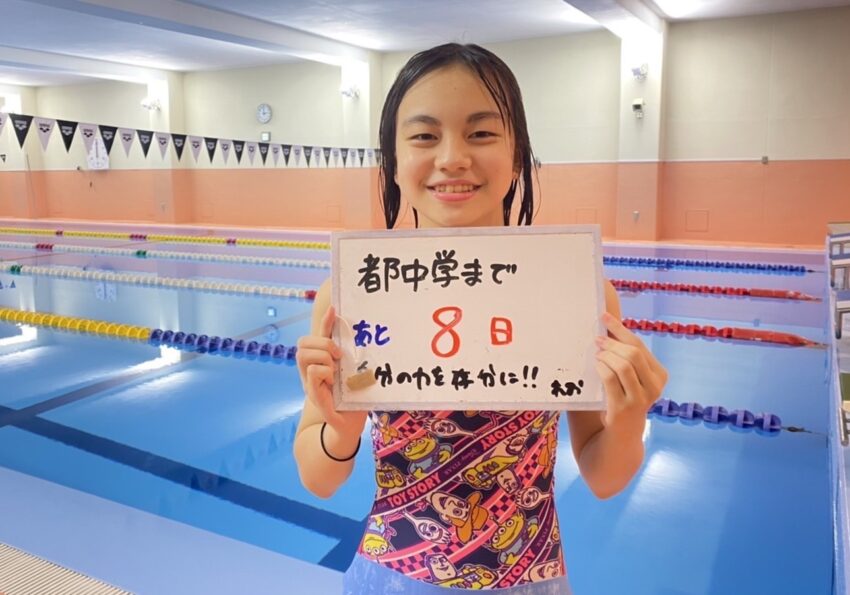 都中学まで
あと 8日
分の力を存分に!!
TOY STORY
TOY STORY
TOY STORY